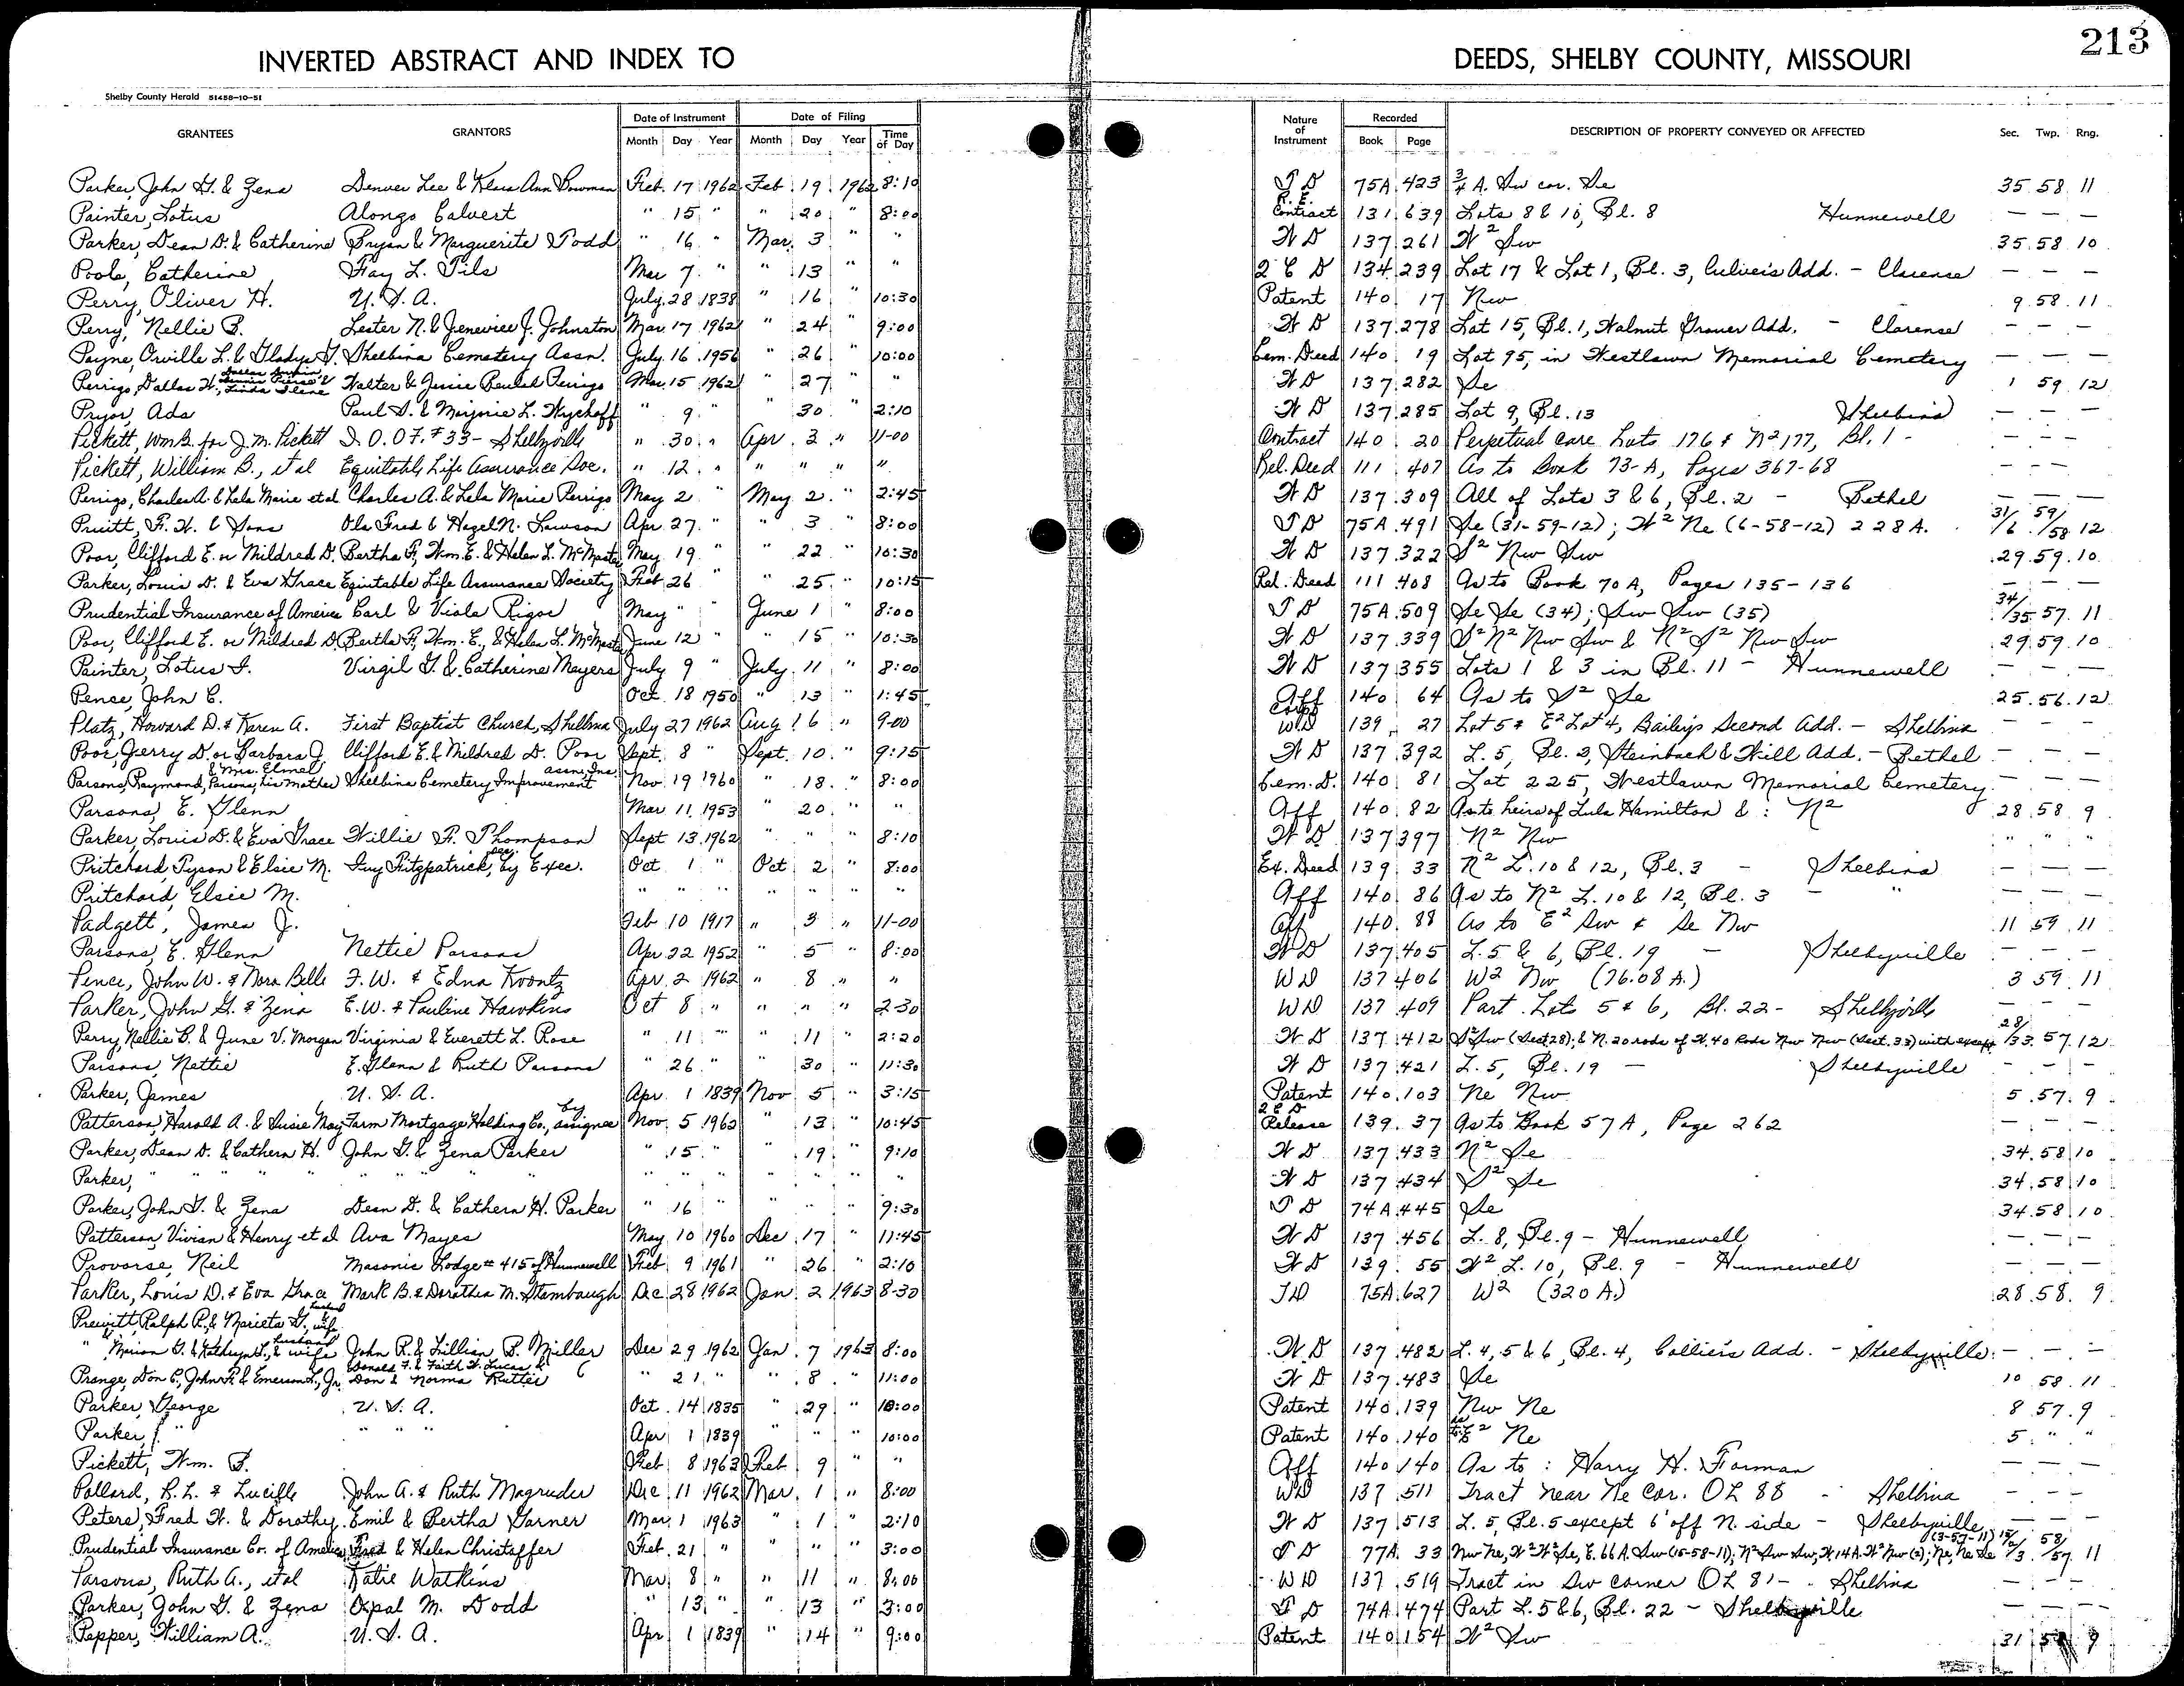 213
INVERTED ABSTRACT AND INDEX TO DEEDS, SHELBY COUNTY, MISSOURI
Shelby County Herald 51458-10-51
GRANTEES GRANTORS Date of Instrument Date of Filing Nature of Instrument Recorded DESCRIPTION OF PROPERTY CONVEYED OR AFFECTED Sec. Twp. Rng.
Month Day Year Month Day Year Time of Day Book Page
Parker, John G. & Zena Denver Lee & Klara Ann Bowman Feb. 17 1962 Feb. 19 1962 8:10 T D 75A 423 3/4 A. Sw cor. Se 35 58 11
Painter, Lotus Alongo Calvert " 15 " " 20 " 8:00 R. E. Contract 131 639 Lots 8 & 10, Bl. 8 Hunnewell — — —
Parker, Dean D. & Catherine Bryan & Marguerite Todd " 16 " Mar. 3 " " W D 137 261 W² Sw 35 58 10
Poole, Catherine Fay L. Tils Mar 7 " " 13 " " Q C D 134 239 Lot 17 & Lot 1, Bl. 3, Culver's Add. - Clarence — — —
Perry, Oliver H. U. S. A. July 28 1838 " 16 " 10:30 Patent 140 17 Nw 9 58 11
Perry, Nellie B. Lester N. & Jeneviee J. Johnston Mar. 17 1962 " 24 " 9:00 W D 137 278 Lot 15, Bl. 1, Walnut Grover Add. - Clarence — — —
Payne, Orville L. & Gladys G. Shelbina Cemetery Assn. July 16 1956 " 26 " 10:00 Cem. Deed 140 19 Lot 95, in Westlawn Memorial Cemetery — — —
Perrigo, Dallas W., Linda Ilene Walter & Jessie Beulah Perrigo Mar. 15 1962 " 27 " " W D 137 282 Se 1 59 12
Pryor, Ada Paul S. & Marjorie L. Wychoff " 9 " " 30 " 2:10 W D 137 285 Lot 9, Bl. 13 Shelbina — — —
Pickett, Wm B. for J. M. Pickett I. O. O. F. #33 - Shelbyville " 30 " Apr. 2 " 11-00 Contract 140 20 Perpetual care Lots 176 & N² 177, Bl. 1 - — — —
Pickett, William B., et al Equitable Life Assurance Soc. " 12 " " " " " Rel. Deed 111 407 As to Book 73-A, Pages 367-68 — — —
Perrigo, Charles A. & Lela Marie et al Charles A. & Lela Marie Perrigo May 2 " May 2 " 2:45 W D 137 309 All of Lots 3 & 6, Bl. 2 - Bethel — — —
Pruitt, F. W. & Sons Ola Fred & Hazel N. Lawson Apr. 27 " " 3 " 8:00 T D 75A 491 Se (31-59-12); W² Ne (6-58-12) 228 A. 31/6 59/58 12
Poor, Clifford E. or Mildred D. Bertha F., Wm. E. & Helen L. McMaster May 19 " " 22 " 10:30 W D 137 322 S² Nw Sw 29 59 10
Parker, Louis D. & Eva Grace Equitable Life Assurance Society Feb 26 " " 25 " 10:15 Rel. Deed 111 408 As to Book 70 A, Pages 135-136 — — —
Prudential Insurance of America Carl & Viola Rigoe May " " June 1 " 8:00 T D 75A 509 Se Se (34); Sw Sw (35) 34/35 57 11
Poor, Clifford E. or Mildred D. Bertha F., Wm. E., & Helen L. McMaster June 12 " " 15 " 10:30 W D 137 339 S² N² Nw Sw & N² S² Nw Sw 29 59 10
Painter, Lotus I. Virgil G. & Catherine Mayers July 9 " July 11 " 8:00 W D 137 355 Lots 1 & 3 in Bl. 11 - Hunnewell — — —
Pence, John C. Oct. 18 1950 " 13 " 1:45 Aff 140 64 As to S² Se 25 56 12
Platz, Howard D. & Karen A. First Baptist Church, Shelbina July 27 1962 Aug 6 " 9-00 Corp WD 139 27 Lot 5 & E² Lot 4, Bailey's Second Add. - Shelbina — — —
Poor, Jerry D. or Barbara J. Clifford E. & Mildred D. Poor Sept. 8 " Sept. 10 " 9:15 W D 137 392 L. 5, Bl. 2, Steinbach & Will Add. - Bethel — — —
Parsons, Raymond, & Mrs. Elmer Parsons, his mother Shelbina Cemetery Improvement Assn., Inc. Nov. 19 1960 " 18 " 8:00 Cem. D. 140 81 Lot 225, Westlawn Memorial Cemetery — — —
Parsons, E. Glenn Mar 11 1953 " 20 " " Aff 140 82 As to heirs of Lula Hamilton & : N² 28 58 9
Parker, Louis D. & Eva Grace Willie F. Thompson Sept 13 1962 " " " 8:10 W D 137 397 N² Nw " " "
Pritchard, Tyson & Elsie M. Guy Fitzpatrick, dec. by Exec. Oct 1 " Oct 2 " 8:00 Ex. Deed 139 33 N² L. 10 & 12, Bl. 3 - Shelbina — — —
Pritchard, Elsie M. " " " " " " " Aff 140 86 As to N² L. 10 & 12, Bl. 3 - " — — —
Padgett, James J. Feb 10 1917 " 3 " 11-00 Aff 140 88 As to E² Sw & Se Nw 11 59 11
Parsons, E. Glenn Nettie Parsons Apr 22 1952 " 5 " 8:00 W D 137 405 L. 5 & 6, Bl. 19 - Shelbyville — — —
Pence, John W. & Nora Belle F. W. & Edna Koontz Apr. 2 1962 " 8 " " WD 137 406 W² Nw (76.08 A.) 3 59 11
Parker, John G. & Zena E. W. & Pauline Hawkins Oct 8 " " " " 2-30 WD 137 409 Part Lots 5 & 6, Bl. 22 - Shelbyville — — —
Perry, Nellie B. & June V. Morgan Virginia & Everett L. Rose " 11 " " 11 " 2:20 W D 137 412 S² Sw (Sect. 28); & N. 20 rods of W. 40 Rods Nw Nw (Sect. 33) with except. 28/33 57 12
Parsons, Nettie E. Glenn & Ruth Parsons " 26 " " 30 " 11:30 W D 137 421 L. 5, Bl. 19 - Shelbyville — — —
Parker, James U. S. A. Apr. 1 1839 Nov 5 " 3:15 Patent 140 103 Ne Nw 5 57 9
Patterson, Harold A. & Susie May Farm Mortgage Holding Co., by assignee Nov. 5 1962 " 13 " 10:45 Q C D Release 139 37 As to Book 57 A, Page 262 — — —
Parker, Dean D. & Cathern H. John G. & Zena Parker " 15 " " 19 " 9:10 W D 137 433 N² Se 34 58 10
Parker, " " " " " " " " " " " W D 137 434 S² Se 34 58 10
Parker, John G. & Zena Dean D. & Cathern H. Parker " 16 " " " 9:30 T D 74A 445 Se 34 58 10
Patterson, Vivian & Henry et al Ava Mayes May 10 1960 Dec. 17 " 11:45 W D 137 456 L. 8, Bl. 9 - Hunnewell — — —
Provorse, Neil Masonic Lodge # 415 of Hunnewell Feb. 9 1961 " 26 " 2:10 W D 139 55 W² L. 10, Bl. 9 - Hunnewell — — —
Parker, Louis D. & Eva Grace Mark B. & Dorothea M. Stambaugh Dec 28 1962 Jan. 2 1963 8-30 TD 75A 627 W² (320 A.) 28 58 9
Prewitt, Ralph P., & Marieta G., husband & wife
" Marion G. & Kathryn L., husband & wife John R. & Lillian B. Miller Dec 29 1962 Jan. 7 1963 8:00 W D 137 482 L. 4, 5 & 6, Bl. 4, Collier's Add. - Shelbyville — — —
Prange, Don C., John F. & Emerson L., Jr. Donald F. & Faith W. Lucas & Don & Norma Rutter " 21 " " 8 " 11:00 W D 137 483 Se 10 58 11
Parker, George U. S. A. Oct. 14 1835 " 29 " 10:00 Patent 140 139 Nw Ne 8 57 9
Parker, " " " " Apr. 1 1839 " " " 10:00 Patent 140 140 E² Ne 5 " "
Pickett, Wm. B. Feb. 8 1963 Feb 9 " " Aff 140 140 As to : Harry H. Forman — — —
Pollard, R. L. & Lucille John A. & Ruth Magruder Dec 11 1962 Mar. 1 " 8:00 WD 137 511 Tract near Ne Cor. OL 88 - Shelbina — — —
Peters, Fred W. & Dorothy Emil & Bertha Garner Mar. 1 1963 " 1 " 2:10 W D 137 513 L. 5, Bl. 5 except 6' off N. side - Shelbyville — — —
Prudential Insurance Co. of America Fred & Helen Christoffer Feb. 21 " " " " 3:00 T D 77A 33 Nw Ne, W² W² Se, E. 66 A. Sw (15-58-11); N² Sw Sw, W. 14 A. W² Nw (2); Ne, Ne Se (3-57-11) 58/57 11
Parsons, Ruth A., et al Katie Watkins Mar 8 " " 11 " 8:00 WD 137 519 Tract in Sw corner OL 81 - Shelbina — — —
Parker, John G. & Zena Opal M. Dodd " 13 " " 13 " 3:00 T D 74A 474 Part L. 5 & 6, Bl. 22 - Shelbyville — — —
Pepper, William A. U. S. A. Apr 1 1839 " 14 " 9:00 Patent 140 154 W² Sw 31 9